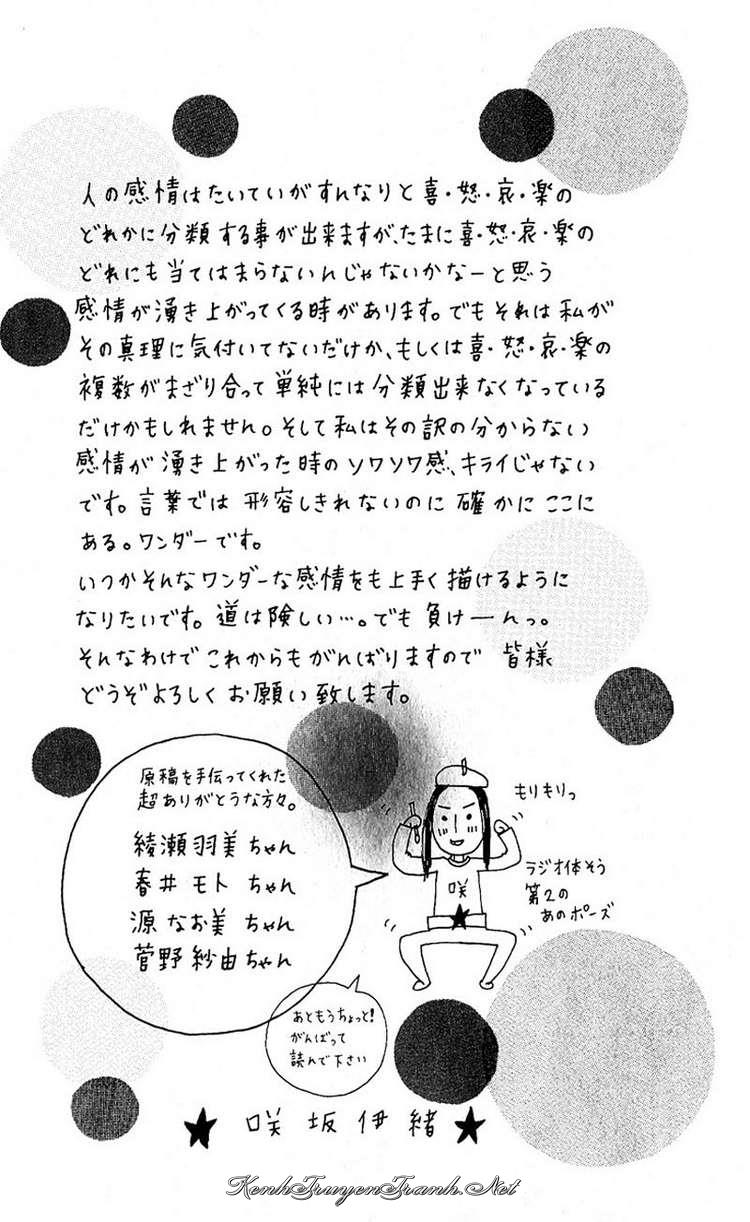 人の感情はたいていがすんなりと喜・怒・哀・楽の
どれかに分類する事が出来ますが、たまに喜・怒・哀・楽の
どれにも当てはまらないんじゃないかなーと思う
感情が湧き上がってくる時があります。でもそれは私が
その真理に気付いてないだけか、もしくは喜・怒・哀・楽の
複数がまざり合って単純には分類出来なくなっている
だけかもしれません。そして私はその訳の分からない
感情が湧き上がった時のソワソワ感、キライじゃない
です。言葉では形容しきれないのに確かにここに
ある。ワンダーです。
いつかそんなワンダーな感情をも上手く描けるように
なりたいです。道は険しい…。でも負けーんっ。
そんなわけでこれからもがんばりますので 皆様
どうぞよろしくお願い致します。
原稿を手伝ってくれた
超ありがとうな方々。
綾瀬羽美ちゃん
春井モトちゃん
源なお美ちゃん
菅野紗由ちゃん
もりもりっ
咲
ラジオ体そう
第2の
あのポーズ
あともうちょっと!
がんばって
読んで下さい
★ 咲坂伊緒 ★
KenhTruyenTranh.Net